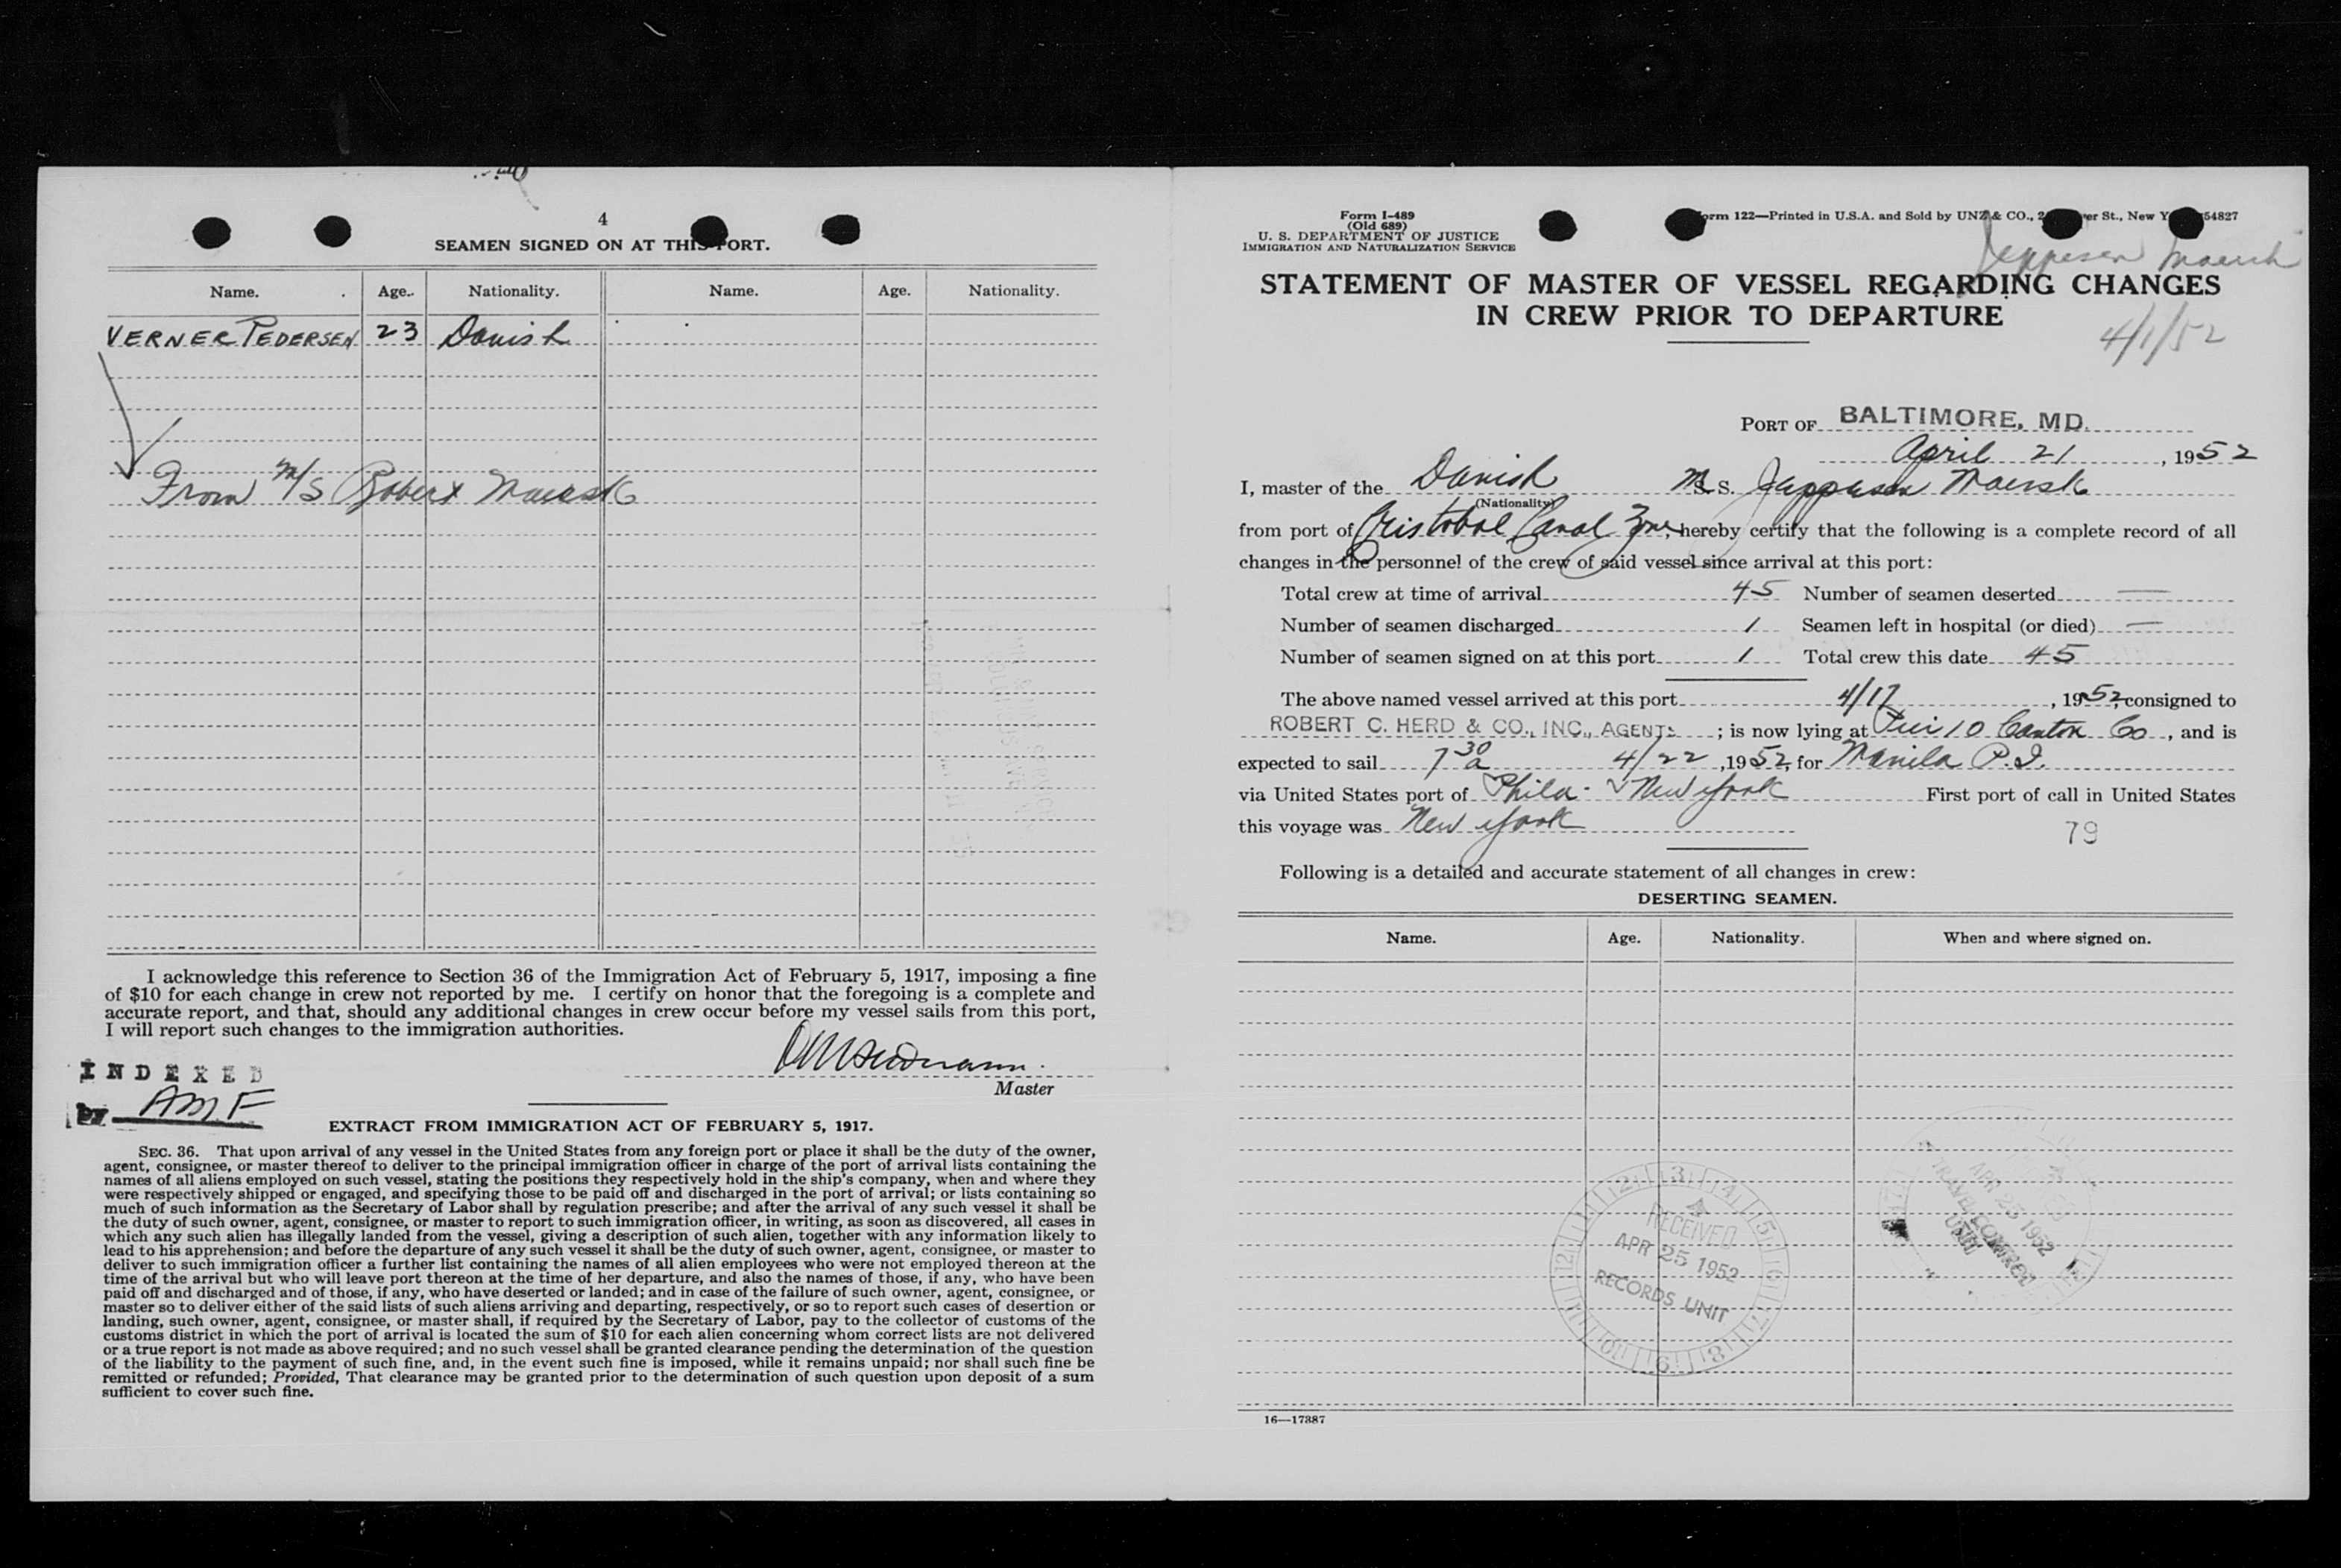 4
SEAMEN SIGNED ON AT THIS PORT.
Name. Age. Nationality. Name. Age. Nationality.
VERNER PEDERSEN 23 Danish
From M/S Robert Maersk
I acknowledge this reference to Section 36 of the Immigration Act of February 5, 1917, imposing a fine
of $10 for each change in crew not reported by me. I certify on honor that the foregoing is a complete and
accurate report, and that, should any additional changes in crew occur before my vessel sails from this port,
I will report such changes to the immigration authorities.
Master
INDEXED
by AMF
EXTRACT FROM IMMIGRATION ACT OF FEBRUARY 5, 1917.
SEC. 36. That upon arrival of any vessel in the United States from any foreign port or place it shall be the duty of the owner,
agent, consignee, or master thereof to deliver to the principal immigration officer in charge of the port of arrival lists containing the
names of all aliens employed on such vessel, stating the positions they respectively hold in the ship's company, when and where they
were respectively shipped or engaged, and specifying those to be paid off and discharged in the port of arrival; or lists containing so
much of such information as the Secretary of Labor shall by regulation prescribe; and after the arrival of any such vessel it shall be
the duty of such owner, agent, consignee, or master to report to such immigration officer, in writing, as soon as discovered, all cases in
which any such alien has illegally landed from the vessel, giving a description of such alien, together with any information likely to
lead to his apprehension; and before the departure of any such vessel it shall be the duty of such owner, agent, consignee, or master to
deliver to such immigration officer a further list containing the names of all alien employees who were not employed thereon at the
time of the arrival but who will leave port thereon at the time of her departure, and also the names of those, if any, who have been
paid off and discharged and of those, if any, who have deserted or landed; and in case of the failure of such owner, agent, consignee, or
master so to deliver either of the said lists of such aliens arriving and departing, respectively, or so to report such cases of desertion or
landing, such owner, agent, consignee, or master shall, if required by the Secretary of Labor, pay to the collector of customs of the
customs district in which the port of arrival is located the sum of $10 for each alien concerning whom correct lists are not delivered
or a true report is not made as above required; and no such vessel shall be granted clearance pending the determination of the question
of the liability to the payment of such fine, and, in the event such fine is imposed, while it remains unpaid; nor shall such fine be
remitted or refunded; Provided, That clearance may be granted prior to the determination of such question upon deposit of a sum
sufficient to cover such fine.
Form I-489
(Old 689)
U. S. DEPARTMENT OF JUSTICE
IMMIGRATION AND NATURALIZATION SERVICE
orm 122—Printed in U.S.A. and Sold by UNZ & CO., 2 er St., New Y 54827
Jeppesen Maersk
STATEMENT OF MASTER OF VESSEL REGARDING CHANGES
IN CREW PRIOR TO DEPARTURE
4/1/52
PORT OF BALTIMORE, MD.
April 21, 1952
I, master of the Danish M. S. Jeppesen Maersk
(Nationality)
from port of Cristobal Canal Zone, hereby certify that the following is a complete record of all
changes in the personnel of the crew of said vessel since arrival at this port:
Total crew at time of arrival 45 Number of seamen deserted —
Number of seamen discharged 1 Seamen left in hospital (or died) —
Number of seamen signed on at this port 1 Total crew this date 45
The above named vessel arrived at this port 4/17, 1952, consigned to
ROBERT C. HERD & CO., INC., AGENTS; is now lying at Pier 10 Canton Co, and is
expected to sail 7 30 a 4/22, 1952, for Manila P.I.
via United States port of Phila. & New York First port of call in United States
this voyage was New York
79
Following is a detailed and accurate statement of all changes in crew:
DESERTING SEAMEN.
Name. Age. Nationality. When and where signed on.
RECEIVED
APR 25 1952
RECORDS UNIT
APR 23 1952
TRAVEL CONTROL
UNIT
16—17387